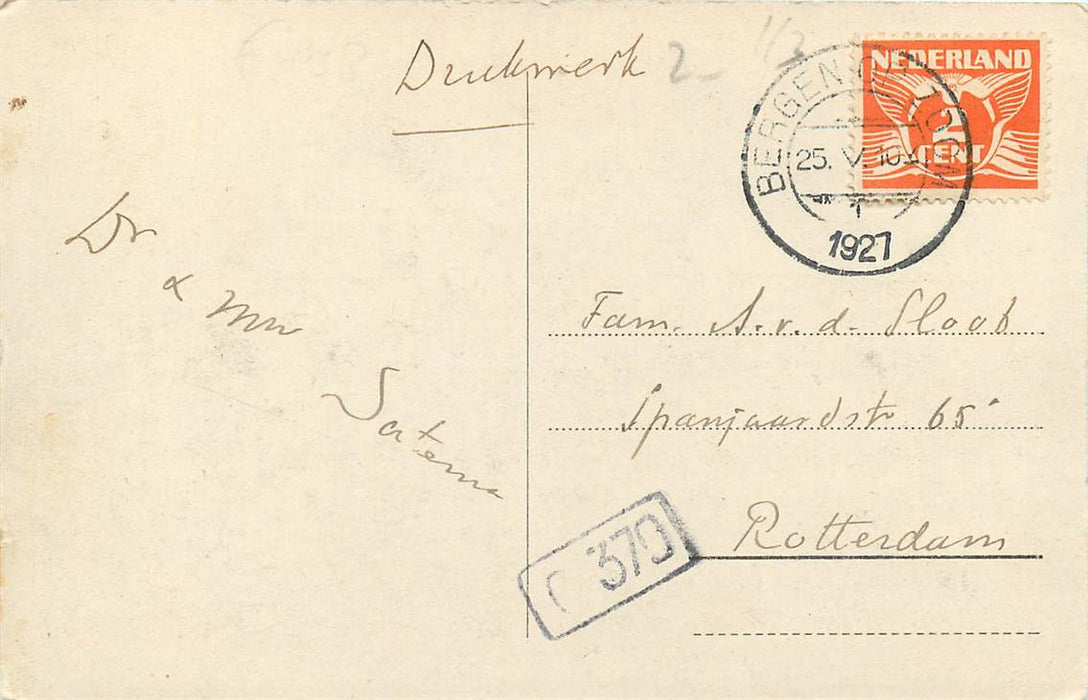 Drukwerk 2- 1/3
NEDERLAND
CENT
BERGEN OP ZOOM
25. V. 10
1
1927
Dr
& Mw
Satema
Fam. A. v. d. Sloot
Spanjaardstr 65
Rotterdam
370